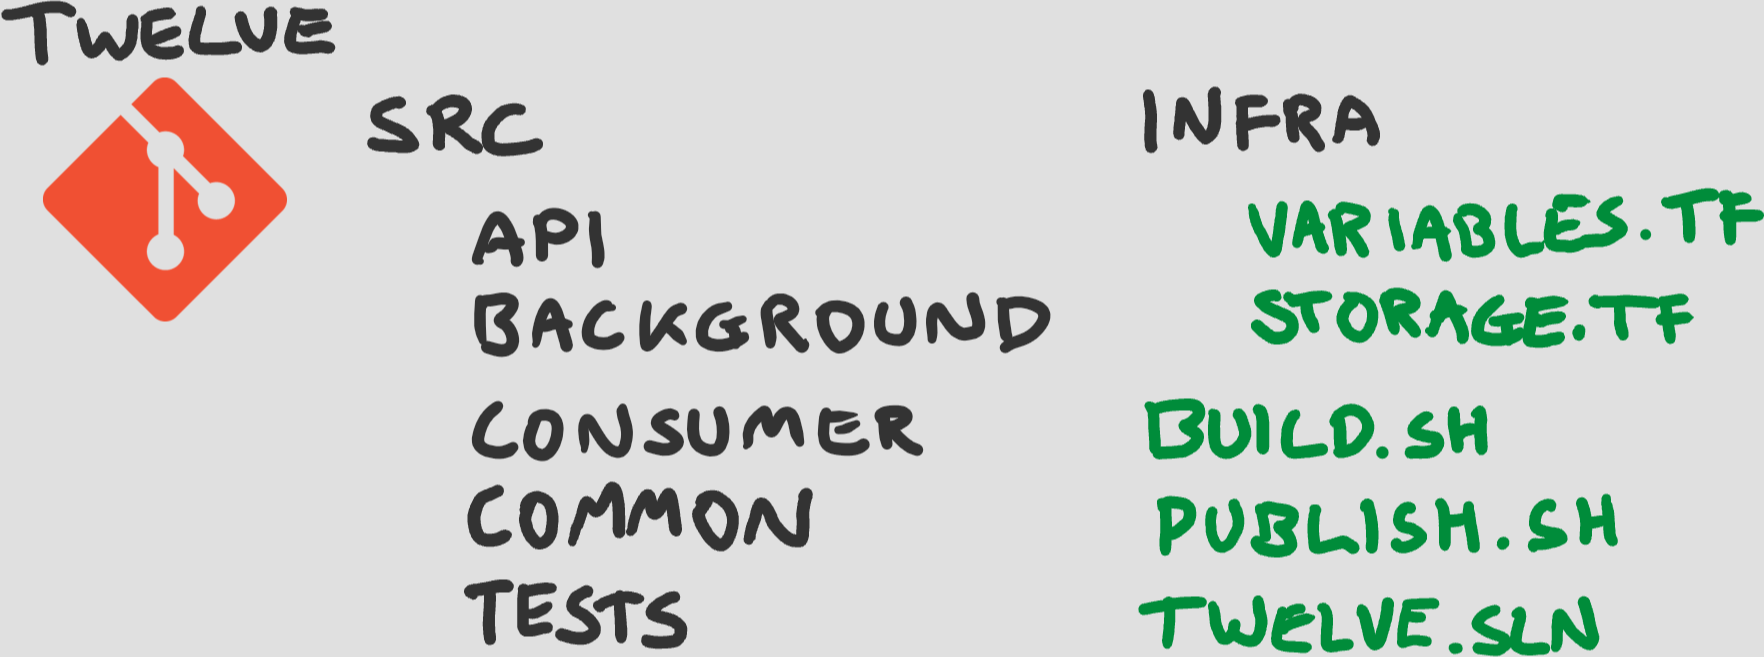 TWELVE
SRC
API
BACKGROUND
CONSUMER
COMMON
TESTS
INFRA
VARIABLES.TF
STORAGE.TF
BUILD.SH
PUBLISH.SH
TWELVE.SLN